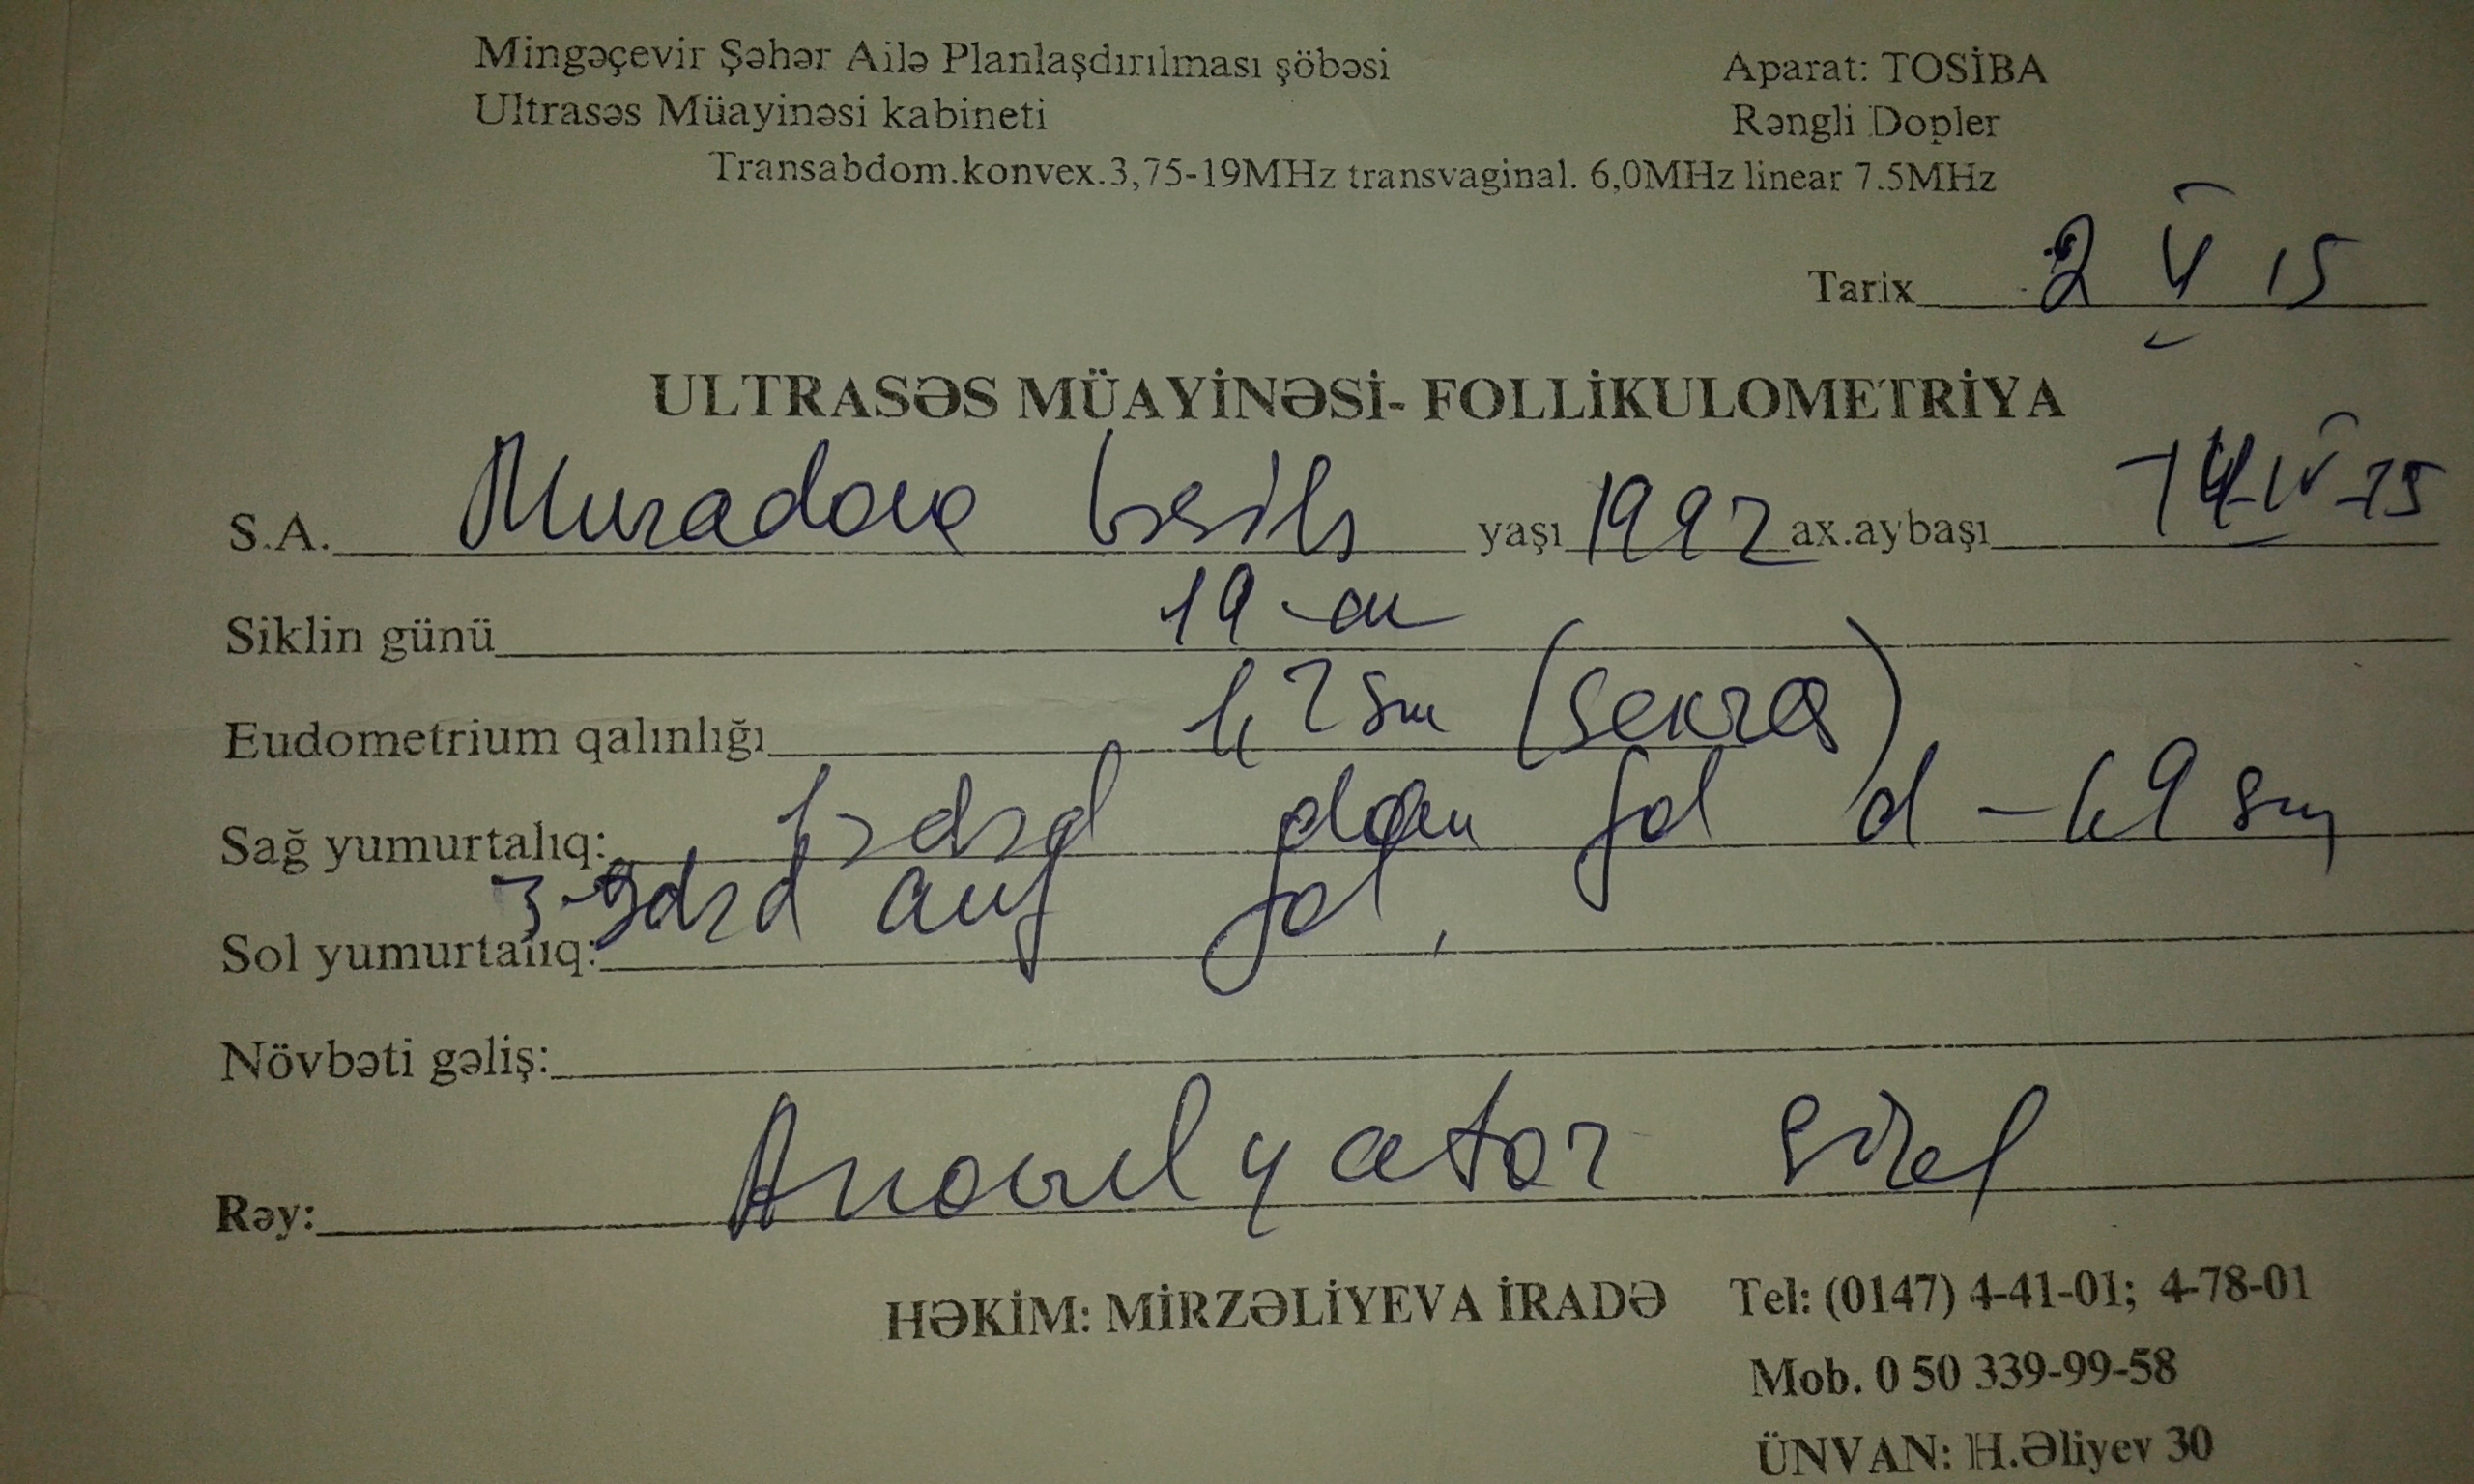 Mingəçevir Şəhər Ailə Planlaşdırılması şöbəsi
Aparat: TOSİBA
Ultrasəs Müayinəsi kabineti
Rəngli Dopler
Transabdom.konvex.3,75-19MHz transvaginal. 6,0MHz linear 7.5MHz
Tarix 2 V 15
ULTRASƏS MÜAYİNƏSİ- FOLLİKULOMETRİYA
S.A. Muradova yaşı 1992 ax.aybaşı 14-IV-15
Siklin günü 19-cu
Eudometrium qalınlığı 1,2 sm
Sağ yumurtalıq: fol d - 1,9 sm
3-5 fol,
Sol yumurtalıq:
Növbəti gəliş:
Rəy: Anovulyator sikl
HƏKİM: MİRZƏLİYEVA İRADƏ Tel: (0147) 4-41-01; 4-78-01
Mob. 0 50 339-99-58
ÜNVAN: H.Əliyev 30